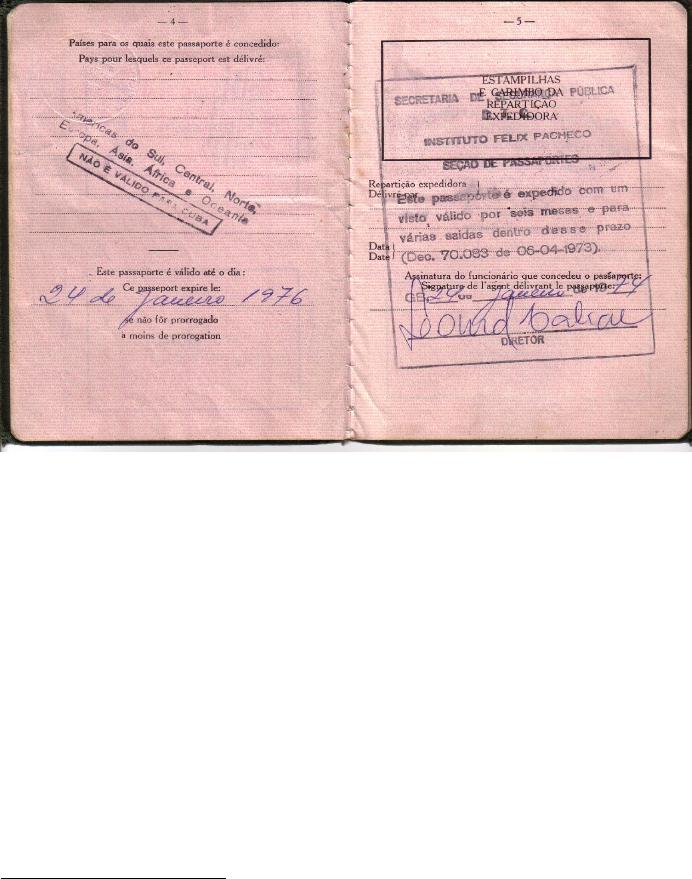 — 4 —
Países para os quais este passaporte é concedido:
Pays pour lesquels ce passeport est délivré:
Américas do Sul, Central, Norte,
Europa, Asia, África e Oceania
NÃO É VÁLIDO PARA CUBA
Este passaporte é válido até o dia:
Ce passeport expire le:
24 de Janeiro 1976
se não fôr prorrogado
a moins de prorogation
— 5 —
ESTAMPILHAS
E CARIMBO DA
REPARTIÇÃO
EXPEDIDORA
SECRETARIA DE SEGURANÇA PÚBLICA
INSTITUTO FELIX PACHECO
SEÇÃO DE PASSAPORTES
Repartição expedidora
Délivré par
Este passaporte é expedido com um
visto válido por seis meses e para
várias saídas dentro desse prazo
Data
Date
(Dec. 70.083 de 06-04-1973).
Assinatura do funcionário que concedeu o passaporte:
Signature de l'agent délivrant le passeporte:
GB. 24 de Janeiro de 1974
DIRETOR